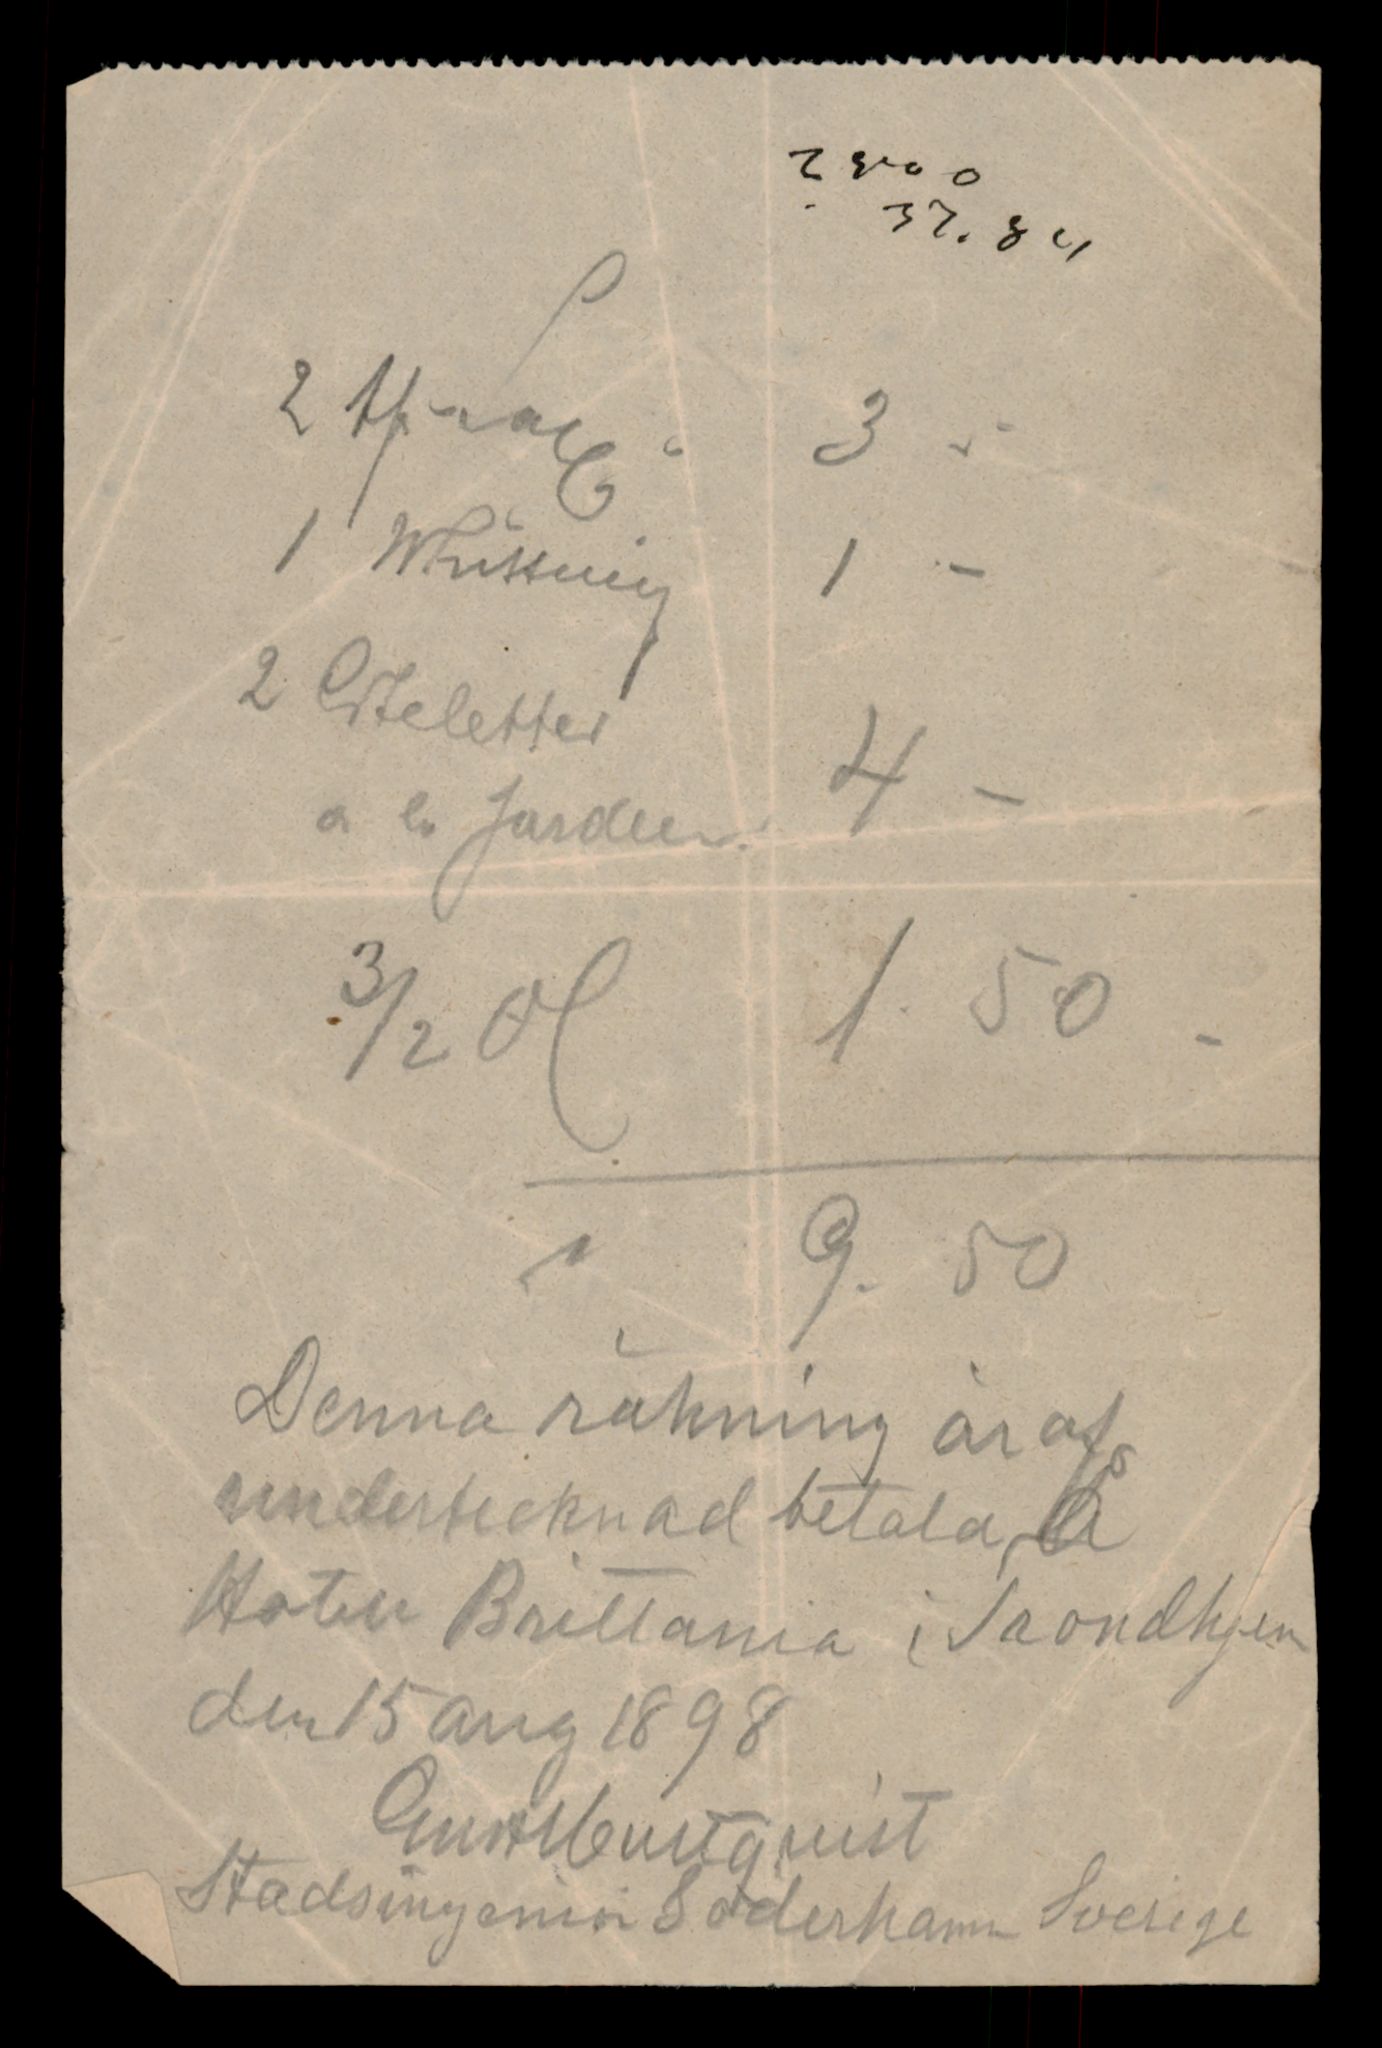 37.84
2 3 -
1 1 -
2 Coteletter
a la Jardin. 4 -
3/2 Øl 1. 50 -
9. 50
Denna räkning är af
undertecknad betald å
Hotell Brittania i Trondhjem
den 15 aug 1898
Stadsingeniör Söderhamn Sverige